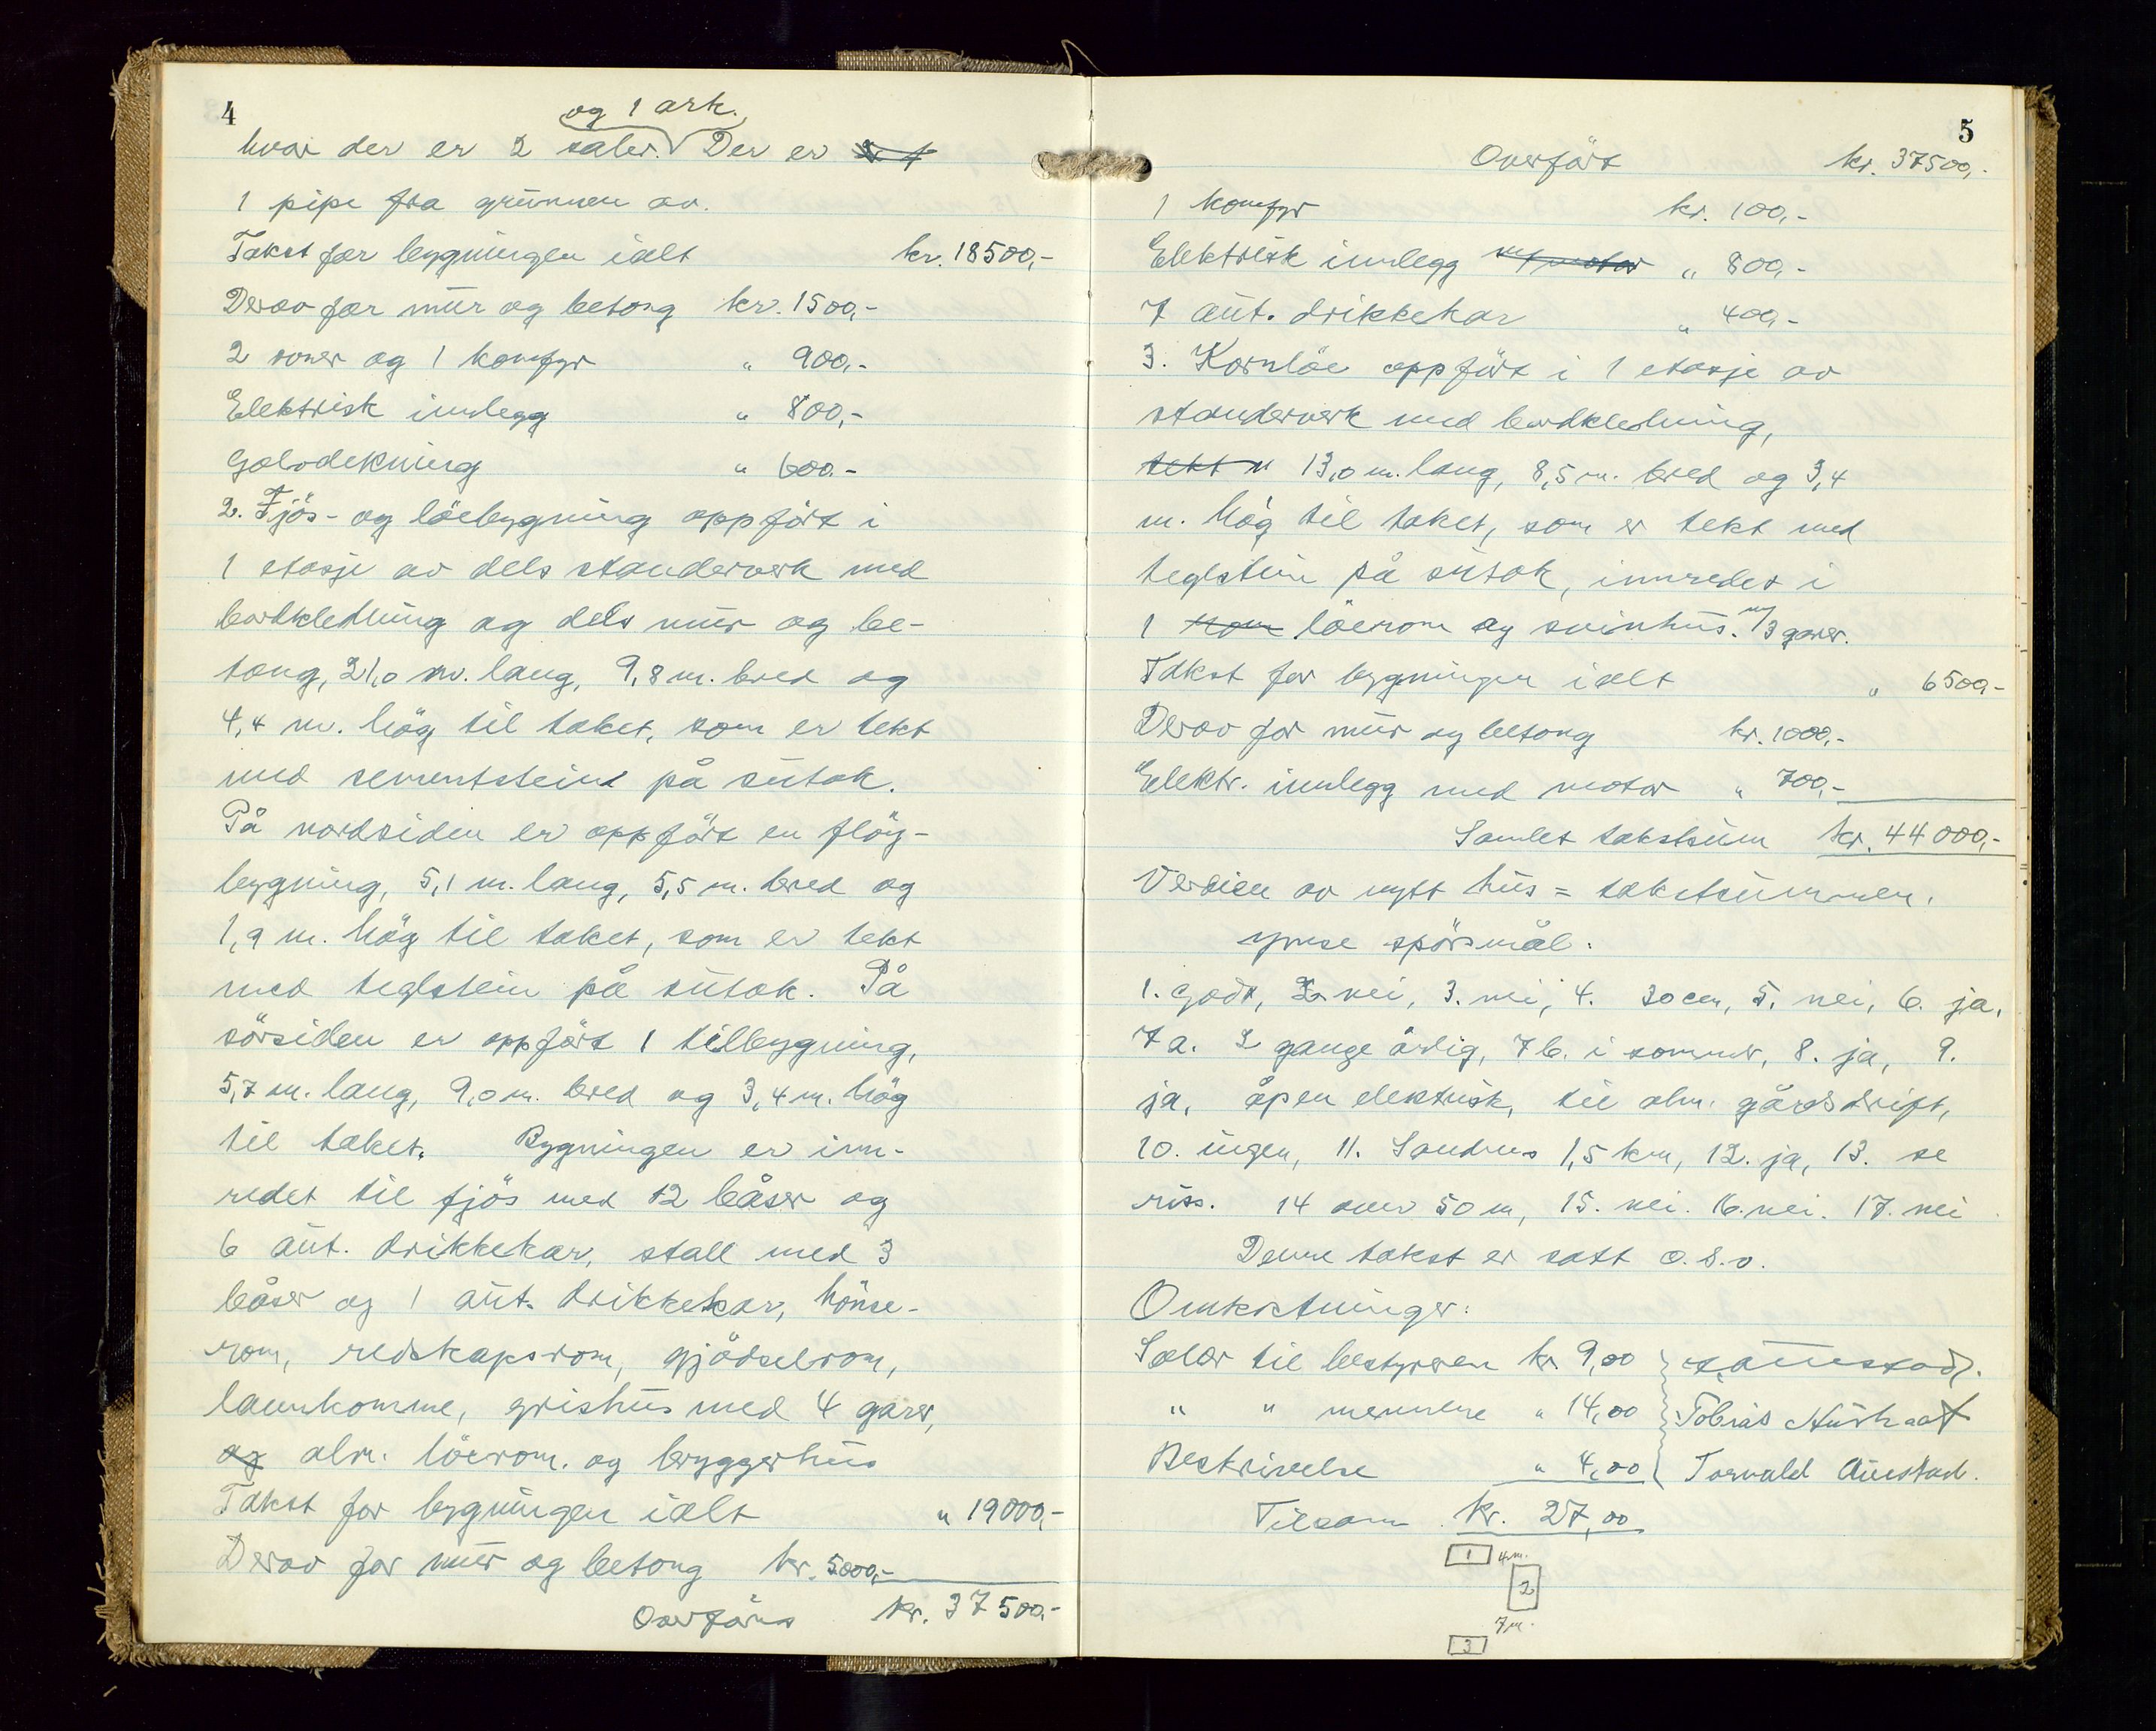 4
og 1 ark.
hvor der er 2 saler. Der er
1 pipe fra grunnen av.
Takst for bygningen ialt kr. 18500,-
Derav for mur og betong kr. 1500,-
2 ovner og 1 komfyr " 900,-
Elektrisk innlegg " 800,-
Golvdekning " 600.-
2. Fjös- og löebygning oppfört i
1 etasje av dels standerverk med
bordkledning og dels mur og be-
tong, 21,0 m. lang, 9,8 m. bred og
4,4 m. hög til taket, som er tekt
med sementstein på sutak.
På nordsiden er oppfört en flöy-
bygning, 5,1 m. lang, 5,5 m. bred og
1,9 m. hög til taket, som er tekt
med teglstein på sutak. På
sörsiden er oppfört 1 tilbygning,
5,7 m. lang, 9,0 m. bred og 3,4 m. hög
til taket. Bygningen er inn-
redet til fjös med 12 båser og
6 aut. drikkekar, stall med 3
båser og 1 aut. drikkekar, hönse-
rom, redskapsrom, gjödselrom,
lannkomme, grishus med 4 garer,
og alm. löerom. og bryggerhus
Takst for bygningen ialt " 19000,-
Derav for mur og betong kr. 5000,-
Overföres kr. 37500,-
5
Overfört kr. 37500,-
1 komfyr kr. 100,-
Elektrisk innlegg m/motor " 800,-
7 aut. drikkekar " 400,-
3. Kornlöe oppfört i 1 etasje av
standerverk med bordkledning,
tekt m 13,0 m. lang, 8,5 m. bred og 3,4
m. hög til taket, som er tekt med
teglstein på sutak, innredet i
1 rom löerom og svinhus. m/3 garer.
Takst for bygningen ialt " 6500,-
Derav for mur og betong kr. 1000,-
Elektr. innlegg med motor " 700,-
Samlet takstsum kr. 44000,-
Verdien av nytt hus = takstsummen.
ymse spörsmål.
1. godt, 2. nei, 3. nei, 4. 30 cm, 5. nei, 6. ja,
7a. 2 gange årlig, 7b. i sommer, 8. ja, 9.
ja, åpen elektrisk, til alm. gårdsdrift,
10. ingen, 11. Sandnes 1,5 km, 12. ja, 13. se
riss. 14 over 50 m, 15. nei. 16. nei. 17. nei
Denne takst er satt o.s.v.
Omkostninger:
Salær til bestyreren kr. 9,00
" " mennene " 14,00 Tobias
Beskrivelse " 4,00 Torvald Austad.
Tilsam kr. 27,00
1 4 m.
2
7 m.
3